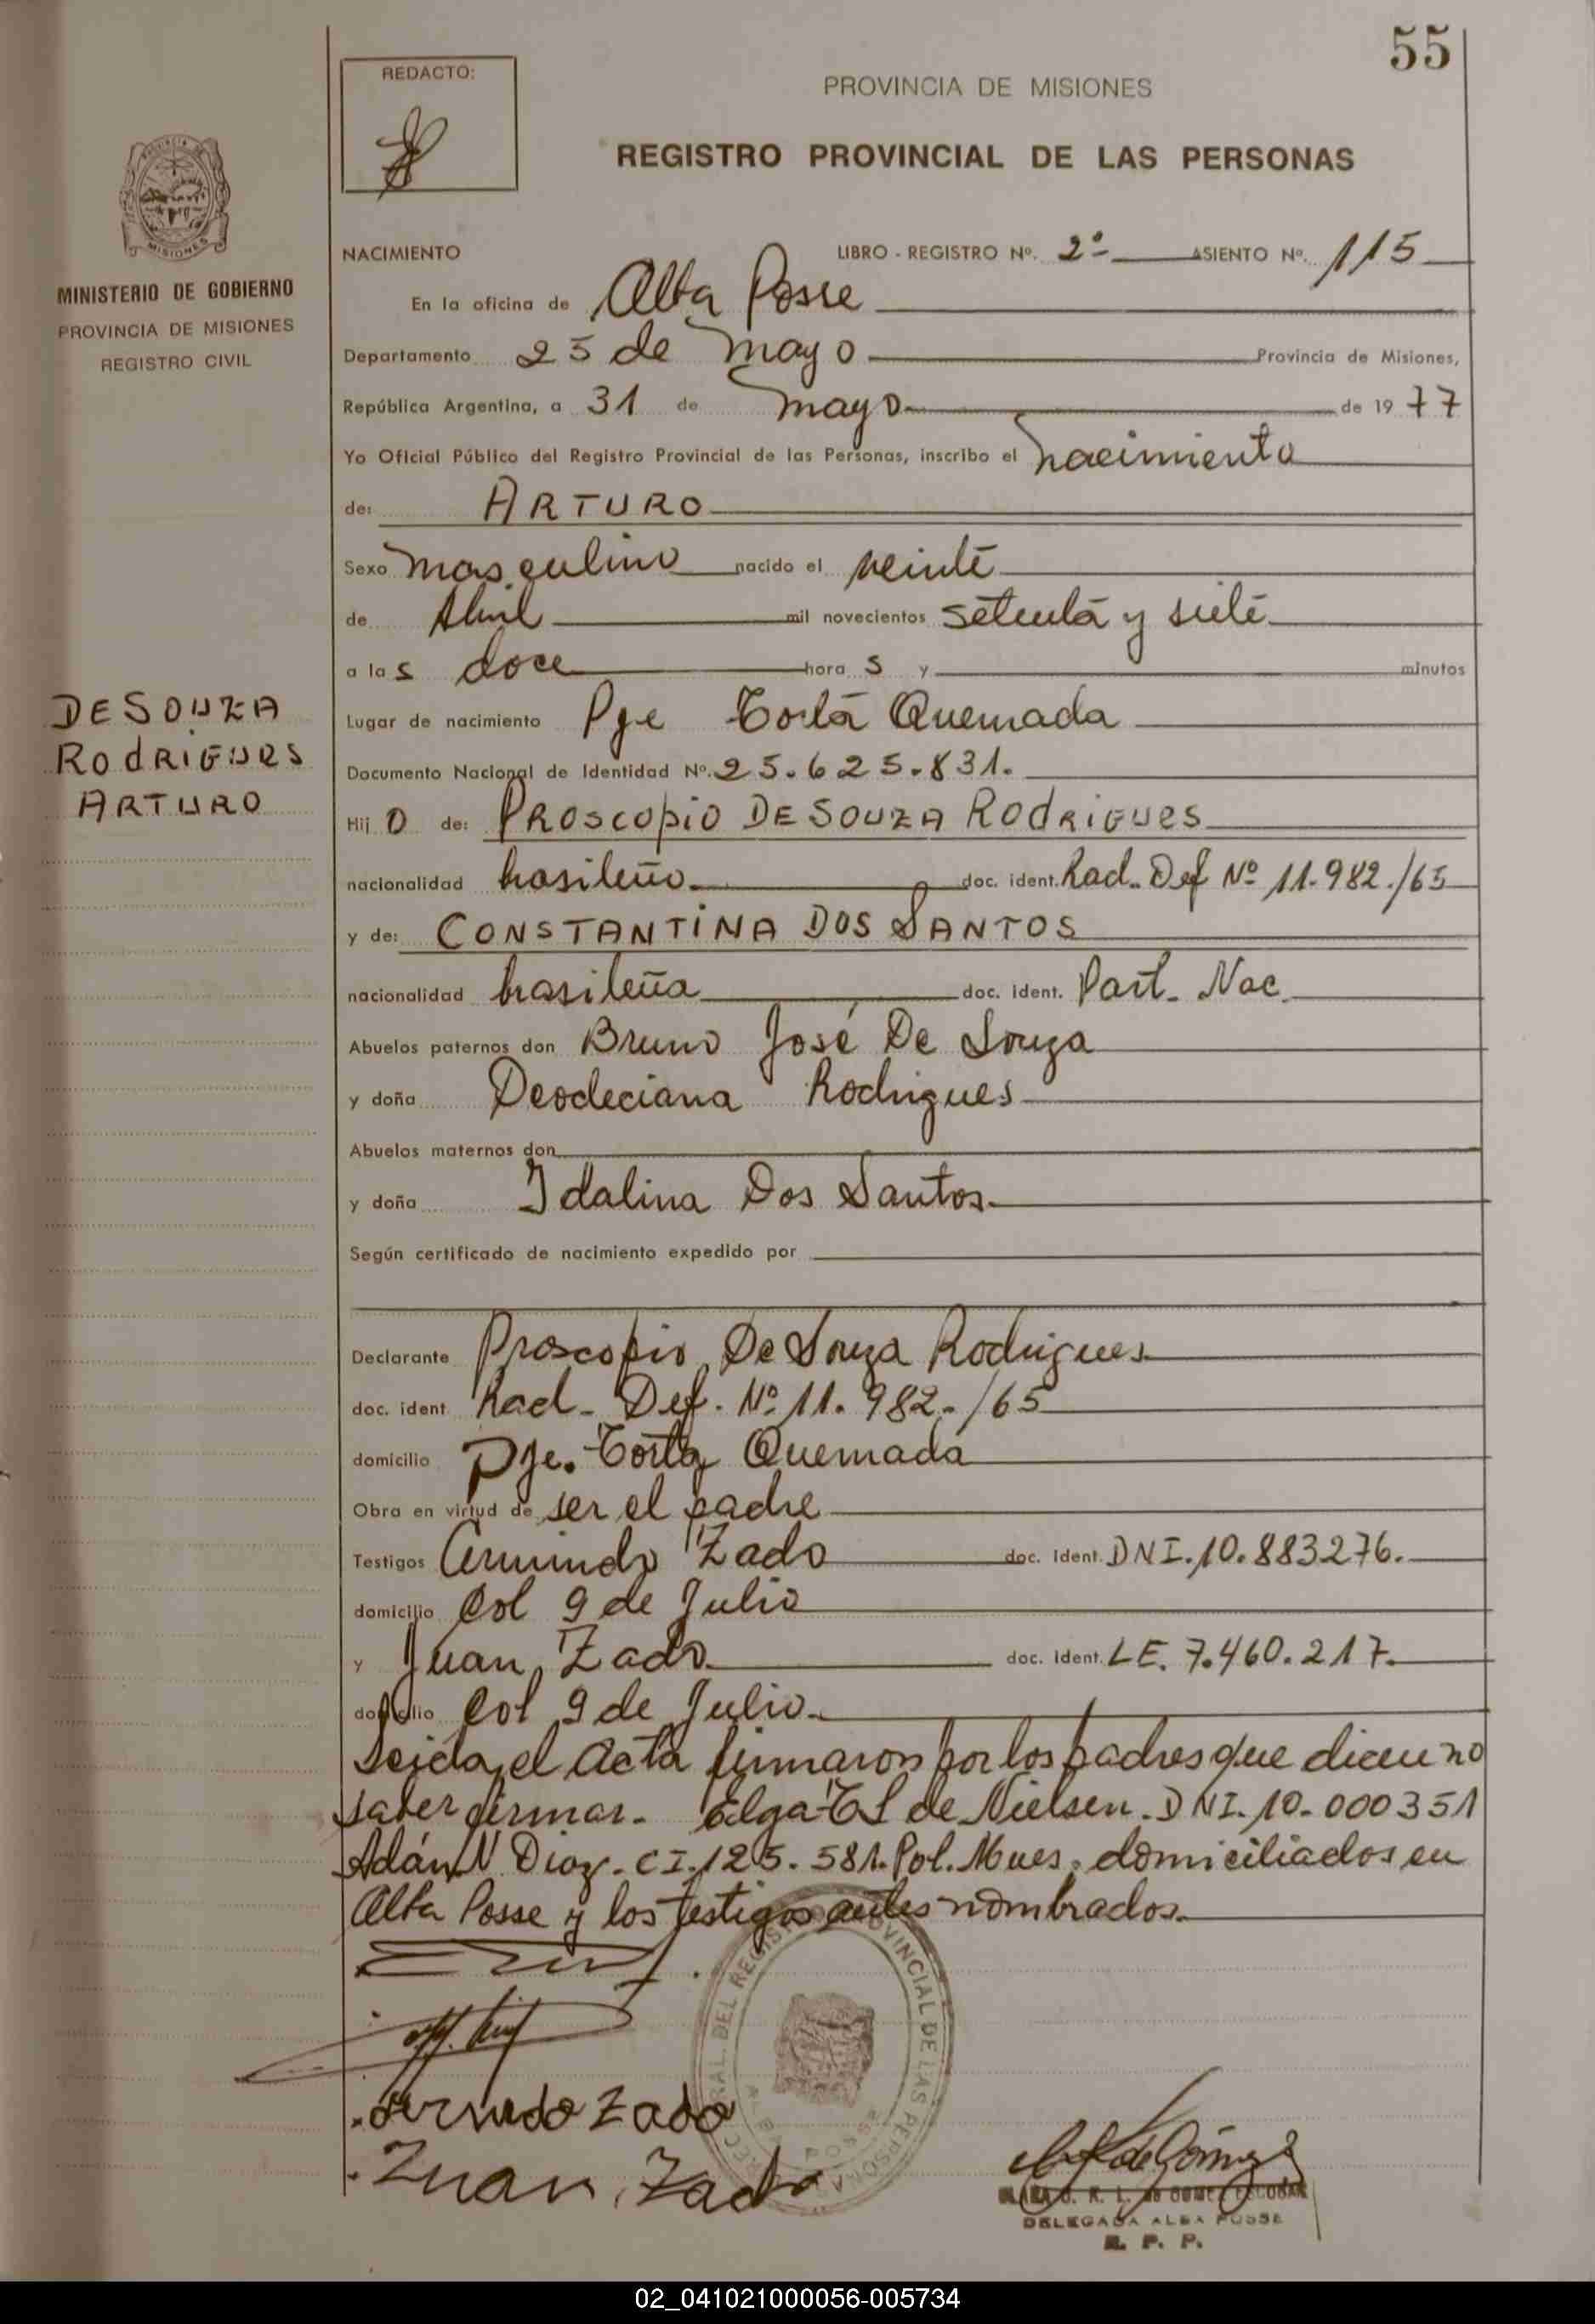 55
REDACTO:
PROVINCIA DE MISIONES
REGISTRO PROVINCIAL DE LAS PERSONAS
MISIONES
MINISTERIO DE GOBIERNO
PROVINCIA DE MISIONES
REGISTRO CIVIL
NACIMIENTO LIBRO - REGISTRO Nº. 2º- ASIENTO Nº. 115
En la oficina de Alba Posse
Departamento 25 de mayo Provincia de Misiones,
República Argentina, a 31 de mayo de 19 77
Yo Oficial Público del Registro Provincial de las Personas, inscribo el nacimiento
de: ARTURO
Sexo masculino nacido el veinte
de Abril mil novecientos setenta y siete
a las doce horas y minutos
DE SOUZA
RodRiGUES
ARTURO
Lugar de nacimiento Pje Torta Quemada
Documento Nacional de Identidad Nº. 25.625.831.
Hijo de: PROSCOPIO DE SOUZA RODRIGUES
nacionalidad brasileño doc. ident. Rad. Def Nº 11.982./65
y de: CONSTANTINA DOS SANTOS
nacionalidad brasileña doc. ident. Part. Nac
Abuelos paternos don Bruno José De Souza
y doña Deodeciana Rodrigues
Abuelos maternos don
y doña Idalina Dos Santos
Según certificado de nacimiento expedido por
Declarante Proscopio De Souza Rodrigues
doc. ident. Rad. Def. Nº 11.982./65
domicilio Pje. Torta Quemada
Obra en virtud de ser el padre
Testigos Armindo Zado doc. ident. DNI.10.883276.
domicilio Col 9 de Julio
y Juan Zado doc. ident. LE. 7.460.217.
domicilio Col 9 de Julio
Leida el Acta firmaron por los padres que dicen no
saber firmar. Elga de Nielsen. DNI. 10.000351
Adán N Diaz. CI.125.581. Pol. Mnes. domiciliados en
Alba Posse y los testigos antes nombrados.
Armindo Zado
Juan Zado
de Gómez
DELEGADA ALBA POSSE
R. P. P.
02_041021000056-005734